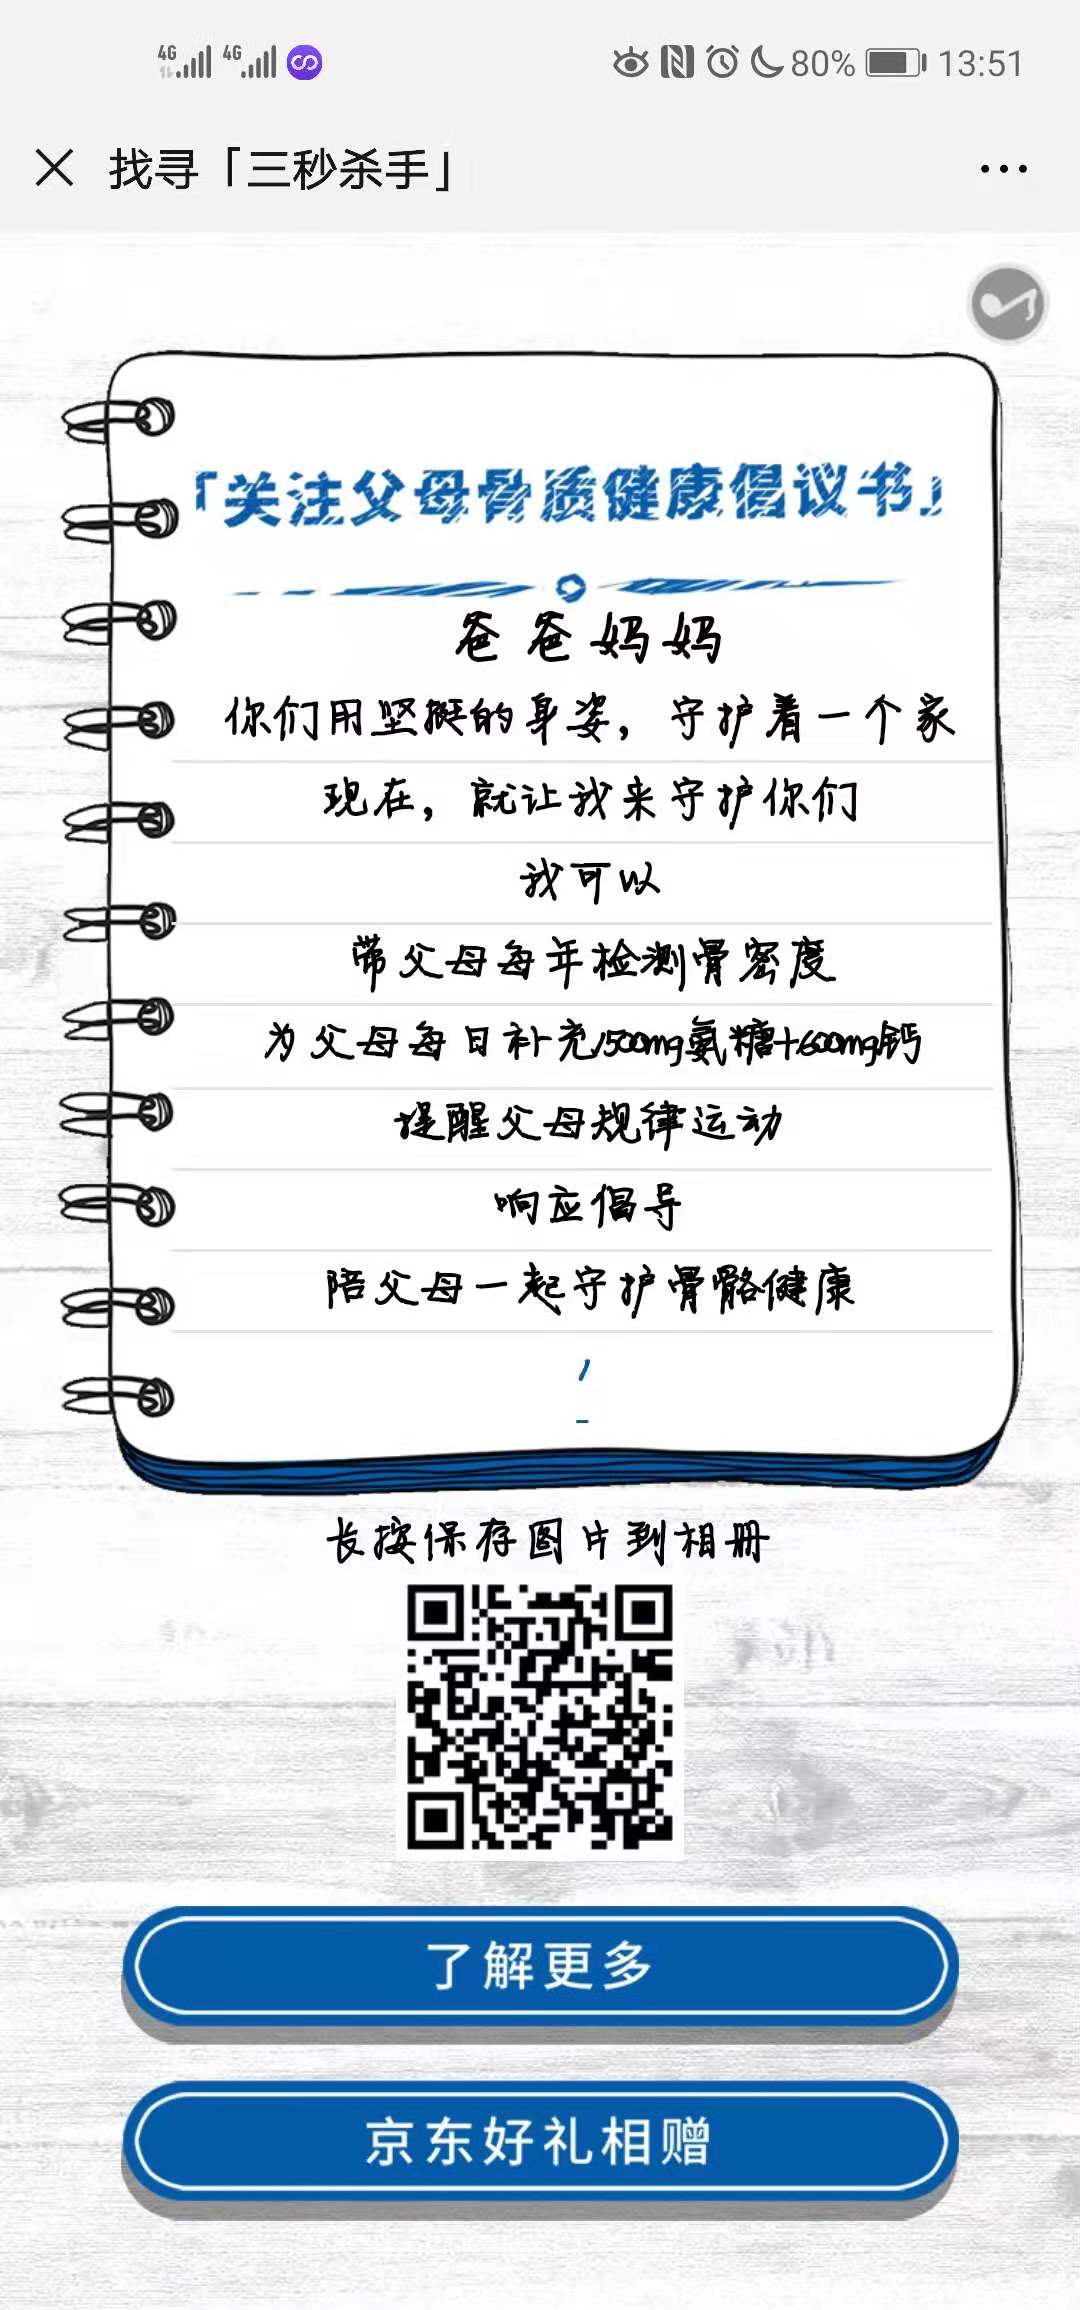 4G 4G 80% 13:51
找寻「三秒杀手」
「关注父母骨质健康倡议书」
爸爸妈妈
你们用坚挺的身姿，守护着一个家
现在，就让我来守护你们
我可以
带父母每年检测骨密度
为父母每日补充1500mg氨糖+600mg钙
提醒父母规律运动
响应倡导
陪父母一起守护骨骼健康
长按保存图片到相册
了解更多
京东好礼相赠